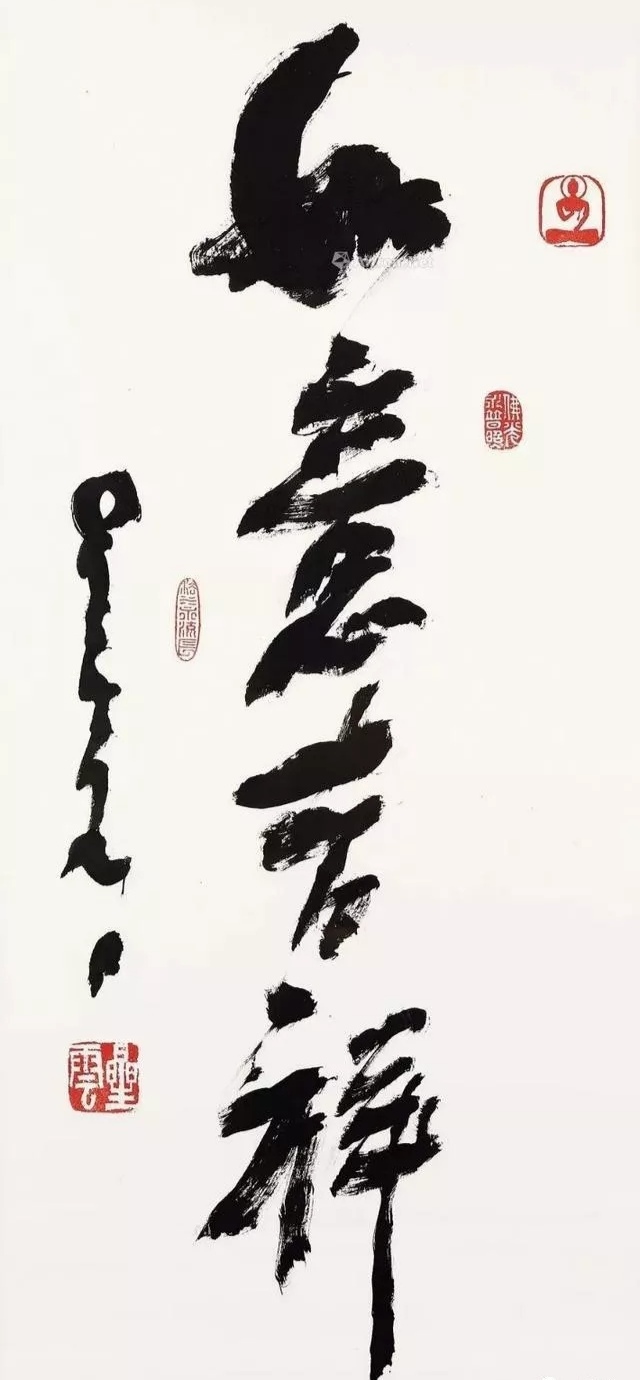 如意吉祥
佛光普照
星雲
星雲